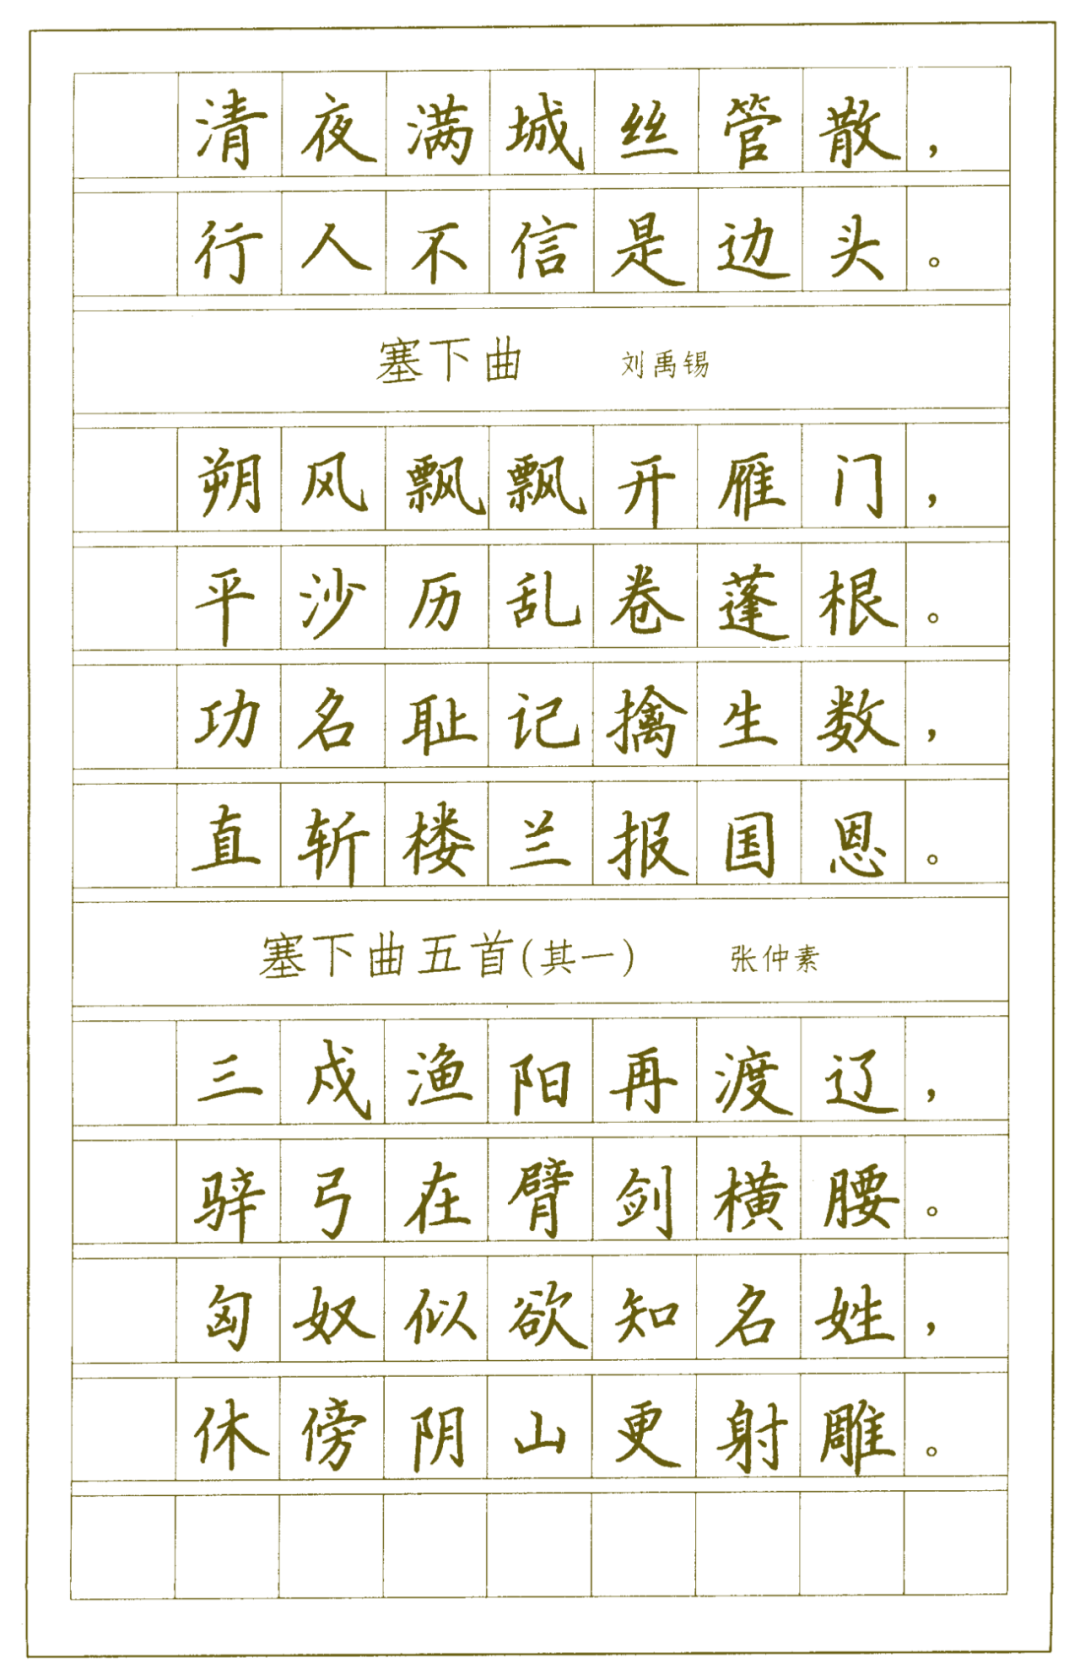 清夜满城丝管散，
行人不信是边头。
塞下曲 刘禹锡
朔风飘飘开雁门，
平沙历乱卷蓬根。
功名耻记擒生数，
直斩楼兰报国恩。
塞下曲五首(其一) 张仲素
三戍渔阳再渡辽，
骍弓在臂剑横腰。
匈奴似欲知名姓，
休傍阴山更射雕。